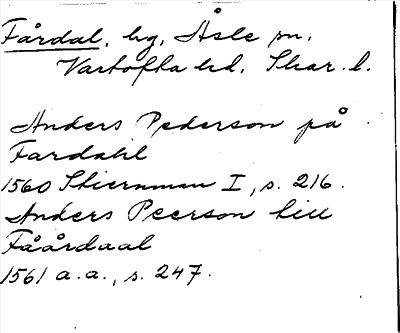 Fårdal, by, Åsle sn.
Vartofta hd. Skar. l.
Anders Pederson på
Fardahl
1560 Stiernman I, s. 216.
Anders Peerson till
Fåårdaal
1561 a.a., s. 247.